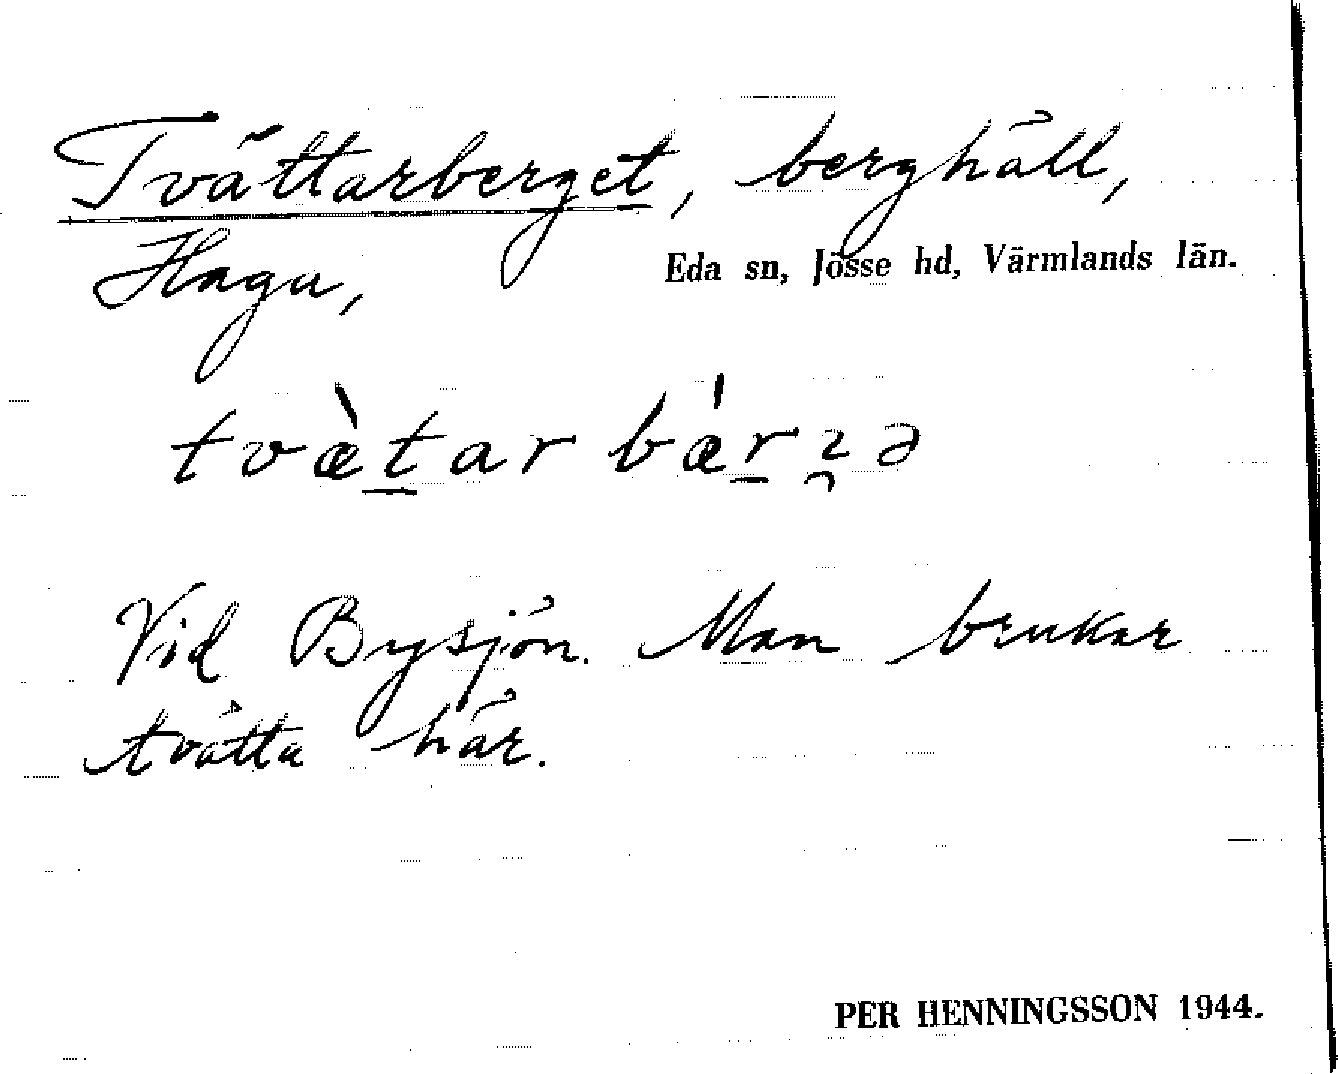 Tvättarberget, berghäll,
Hagu, Eda sn, Jösse hd, Värmlands län.
tvæ̀t̠ar bǽr̠ʓ̑ə
Vid Bysjön. Man brukar
tvätta här.
PER HENNINGSSON 1944.